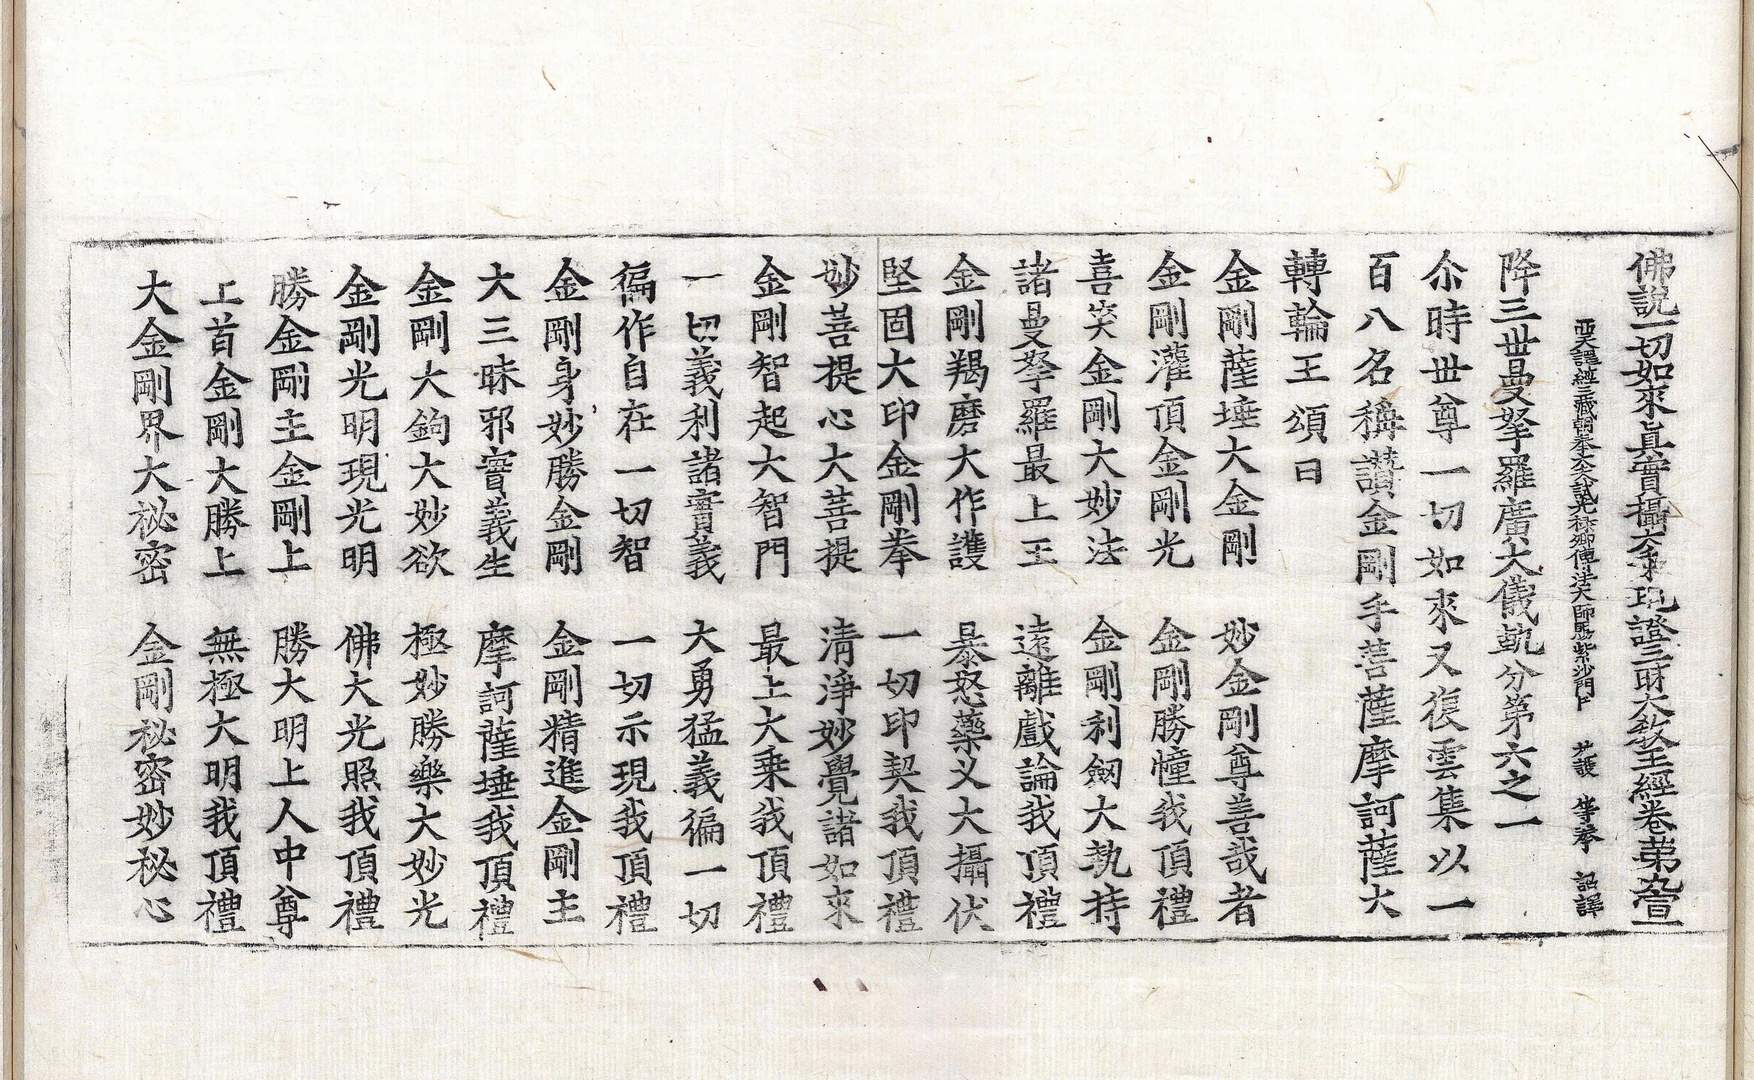 佛說一切如來眞實攝大乗現證三昧大敎王經卷苐
西天譯經三藏朝奉大夫試光祿卿傳法大師賜紫沙門臣 施護 等奉 詔譯
降三丗曼拏羅廣大儀軌分第六之一
尒時丗尊一切如來又復雲集以一
百八名稱讃金剛手菩薩摩訶薩大
轉輪王頌曰
金剛薩埵大金剛 妙金剛尊善哉者
金剛灌頂金剛光 金剛勝幢我頂禮
喜笑金剛大妙法 金剛利劒大執持
諸曼拏羅最上王 逺離戲論我頂禮
金剛羯磨大作護 暴怒藥叉大攝伏
堅固大印金剛拳 一切印契我頂禮
妙菩提心大菩提 清淨妙覺諸如來
金剛智起大智門 最上大乘我頂禮
一切義利諸實義 大勇猛義徧一切
徧作自在一切智 一切示現我頂禮
金剛身妙勝金剛 金剛精進金剛主
大三昧邪實義生 摩訶薩埵我頂禮
金剛大鉤大妙欲 極妙勝樂大妙光
金剛光明現光明 佛大光照我頂禮
勝金剛主金剛上 勝大明上人中尊
上首金剛大勝上 無極大明我頂禮
大金剛界大祕密 金剛秘密妙秘心